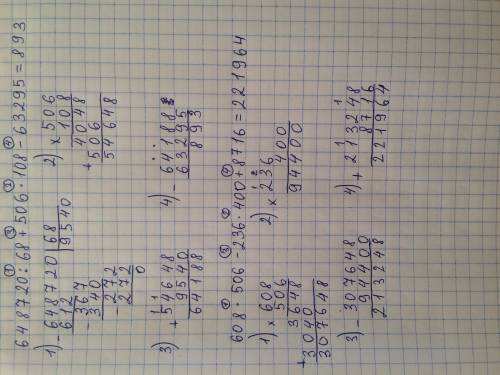 ① ③ ② ④
648720 : 68 + 506 · 108 - 63295 = 893
1) - 648720 | 68
612 | 9540
- 367
340
- 272
272
0
2) × 506
108
4048
+ 506
54648
3) + 54648
9540
64188
4) - 64188
63295
893
① ③ ② ④
608 · 506 - 236 · 400 + 8716 = 221964
1) × 608
506
3648
+ 3040
307648
2) × 236
400
94400
3) - 307648
94400
213248
4) + 213248
8716
221964